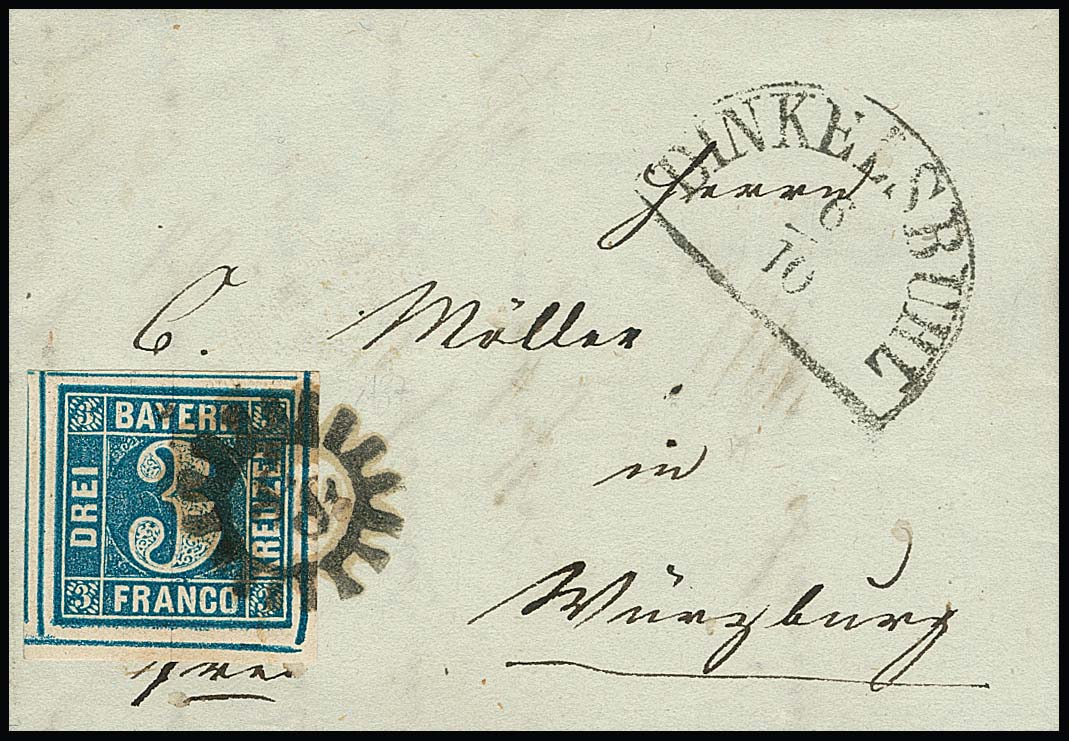 DINKELSBÜHL
6
10
Herrn
C. Möller
in
Würzburg
3 BAYERN 3
DREI
3
KREUZER
3 FRANCO 3